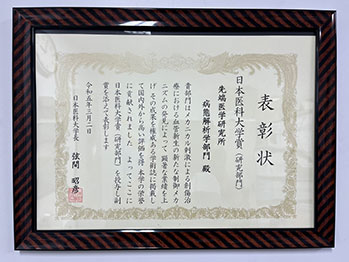 表彰状
日本医科大学賞（研究部門）
先端医学研究所
病態解析学部門 殿
貴部門はメカニカル刺激による創傷治
療における血管新生の新たな制御メカ
ニズムの発見によって顕著な業績を上
げ その成果を権威ある学術誌に掲載し
て国内外から高い評価を得 本学の栄誉
に貢献されました よってここに
日本医科大学賞（研究部門）を授与し副
賞を添えて表彰します
令和五年三月二日
日本医科大学長 弦間 昭彦